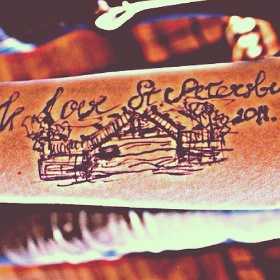 Love St Petersbu
2011.